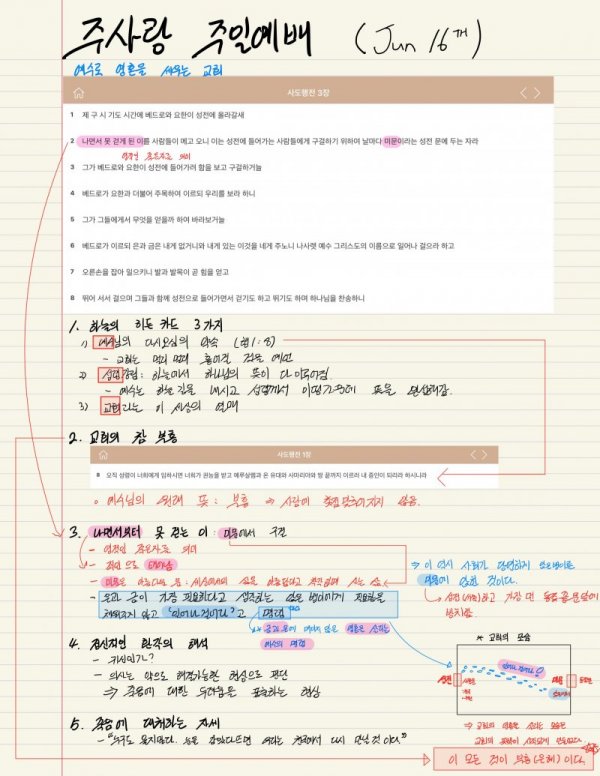 주사랑 주일예배 (Jun 16th)
예수로 영혼을 세우는 교회
사도행전 3장
1 제 구 시 기도 시간에 베드로와 요한이 성전에 올라갈새
2 나면서 못 걷게 된 이를 사람들이 메고 오니 이는 성전에 들어가는 사람들에게 구걸하기 위하여 날마다 미문이라는 성전 문에 두는 자라
영적인 죽은자를 의미
3 그가 베드로와 요한이 성전에 들어가려 함을 보고 구걸하거늘
4 베드로가 요한과 더불어 주목하여 이르되 우리를 보라 하니
5 그가 그들에게서 무엇을 얻을까 하여 바라보거늘
6 베드로가 이르되 은과 금은 내게 없거니와 내게 있는 이것을 네게 주노니 나사렛 예수 그리스도의 이름으로 일어나 걸으라 하고
7 오른손을 잡아 일으키니 발과 발목이 곧 힘을 얻고
8 뛰어 서서 걸으며 그들과 함께 성전으로 들어가면서 걷기도 하고 뛰기도 하며 하나님을 찬송하니
1. 하늘의 히든 카드 3가지
1) 예수님의 다시오심의 약속 (행 1:8)
- 교회는
2) 성령강림: 하늘에서 하나님의 뜻이 다 이루어짐.
- 예수는 하늘 길을 내시고 성령께서 이땅가운데 뜻을 완성해감.
3) 교회라는 이 세상의 열매
2. 교회의 참 부흥
사도행전 1장
8 오직 성령이 너희에게 임하시면 너희가 권능을 받고 예루살렘과 온 유대와 사마리아와 땅 끝까지 이르러 내 증인이 되리라 하시니라
예수님의 원래 뜻 : 부흥 ⇒ 사람에 맞추어지지 않음.
3. 나면서부터 못 걷는 이 : 미문에서 구걸
- 영적인 죽은자를 의미
- 죄인으로 태어남
- 미문은 아름다운 문 : 세상에서의 삶을 아름답다고 착각하며 사는 삶
- 은과 금이 가장 필요하다고 생각하는 앉은 뱅이에게 필요함을
채워주지 않고 "일어나 걸어라" 고 명령
⇒ 이 역시 사회가 당연하게
미문에 앉힌 것이다.
4. 정신적인 환각의 해석
- 귀신인가?
- 의사는 약으로 해결가능한 현상으로 판단
⇒ 죽음에 대한 두려움을 표출하는 현상
* 교회의 모습
성전
미문
5. 죽음에 대처하는 자세
- "누구도 울지말라. 눈을 감았다뜨면 우리는 천국에서 다시 만날 것이다"
이 모든 것이 부흥(은혜)이다.